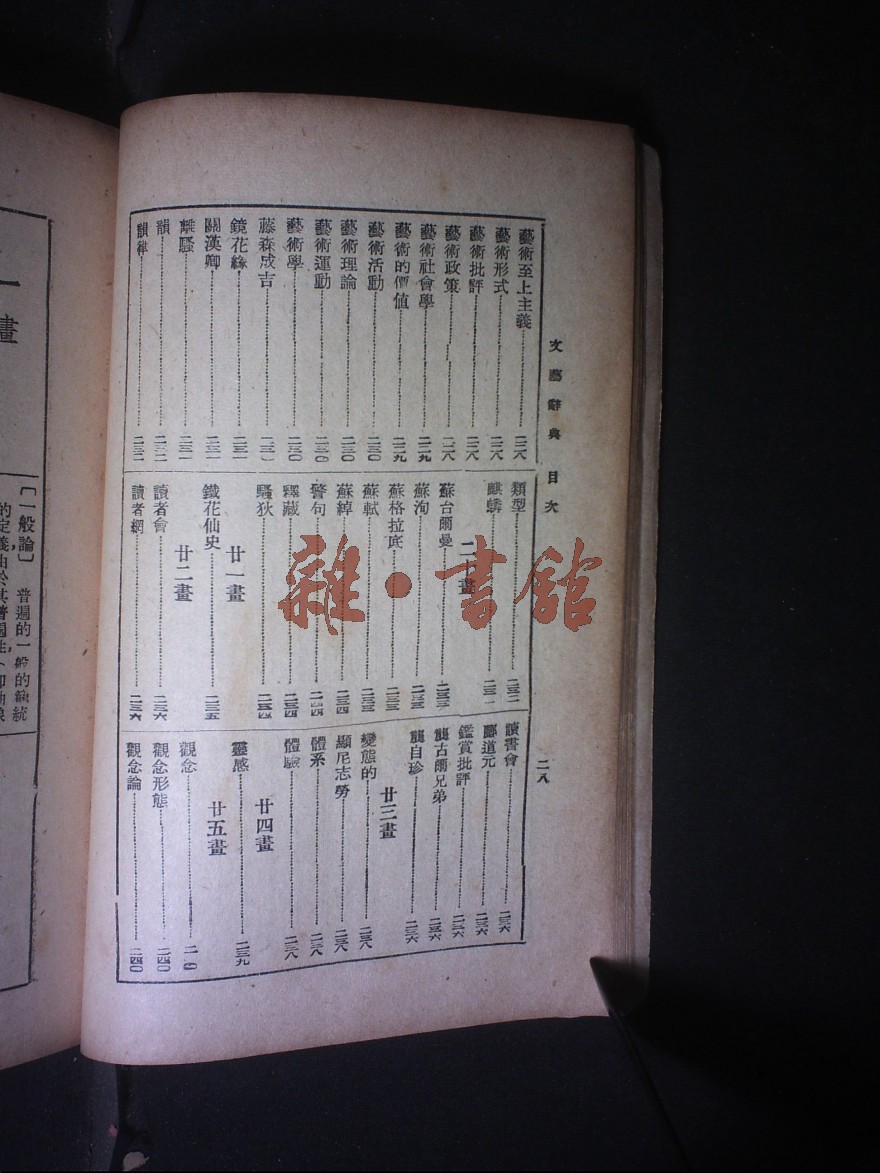 文藝辭典　目次
二八
藝術至上主義……二二八
藝術形式……二二八
藝術批評……二二八
藝術政策……二二八
藝術社會學……二二九
藝術的價值……二二九
藝術活動……二三〇
藝術理論……二三〇
藝術運動……二三〇
藝術學……二三〇
藤森成吉……二三一
鏡花緣……二三一
關漢卿……二三一
離騷……二三一
韻……二三二
韻律……二三二
類型……二三二
麒麟……二三二
二十畫
蘇台爾曼……二三三
蘇洵……二三三
蘇格拉底……二三三
蘇軾……二三三
蘇綽……二三四
警句……二三四
釋藏……二三四
騷狄……二三四
廿一畫
鐵花仙史……二三五
廿二畫
讀者會……二三六
讀者網……二三六
讀書會……二三六
酈道元……二三六
鑑賞批評……二三六
龔古爾兄弟……二三六
龔自珍……二三六
廿三畫
變態的……二三八
顯尼志勞……二三八
體系……二三八
體驗……二三八
廿四畫
靈感……二三九
廿五畫
觀念……
觀念形態……二四〇
觀念論……二四〇
雜·書館
畫
〔一般論〕　普遍的一般的